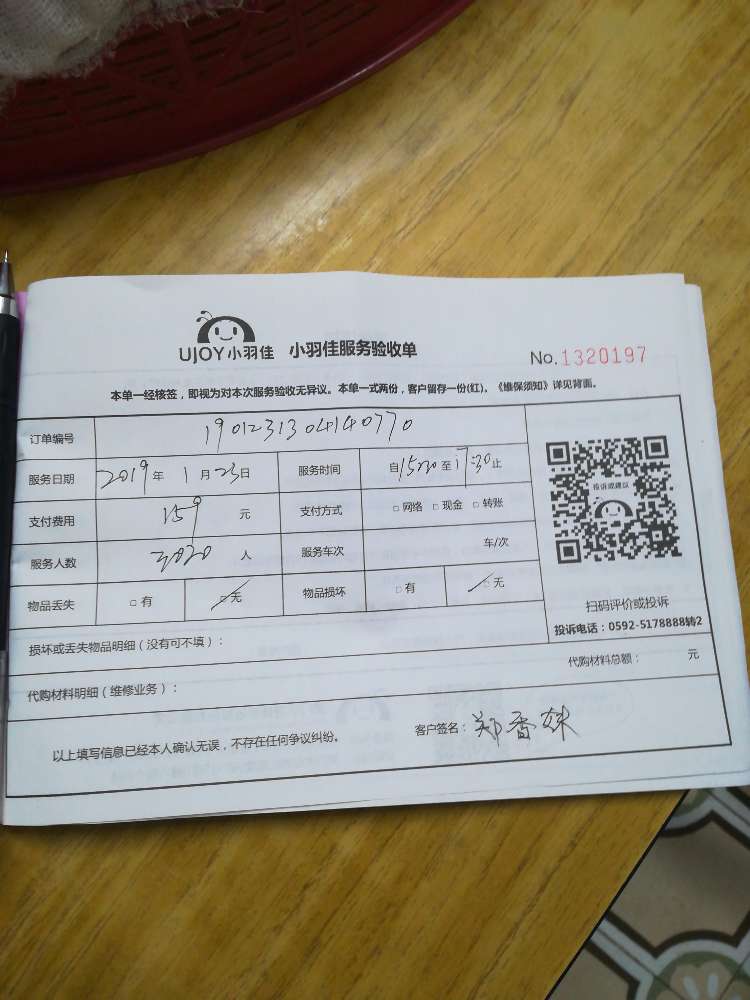 UJOY小羽佳 小羽佳服务验收单 No.1320197
本单一经核签，即视为对本次服务验收无异议。本单一式两份，客户留存一份(红)。《维保须知》详见背面。
订单编号 1901231304140770
服务日期 2019年1月23日 服务时间 自1530至17:30止
支付费用 159 元 支付方式 □网络 □现金 □转账
服务人数 3020 人 服务车次 车/次
物品丢失 □有 □无 物品损坏 □有 □无
投诉或建议
扫码评价或投诉
投诉电话：0592-5178888转2
损坏或丢失物品明细（没有可不填）：
代购材料明细（维修业务）： 代购材料总额： 元
以上填写信息已经本人确认无误，不存在任何争议纠纷。 客户签名：郑香妹